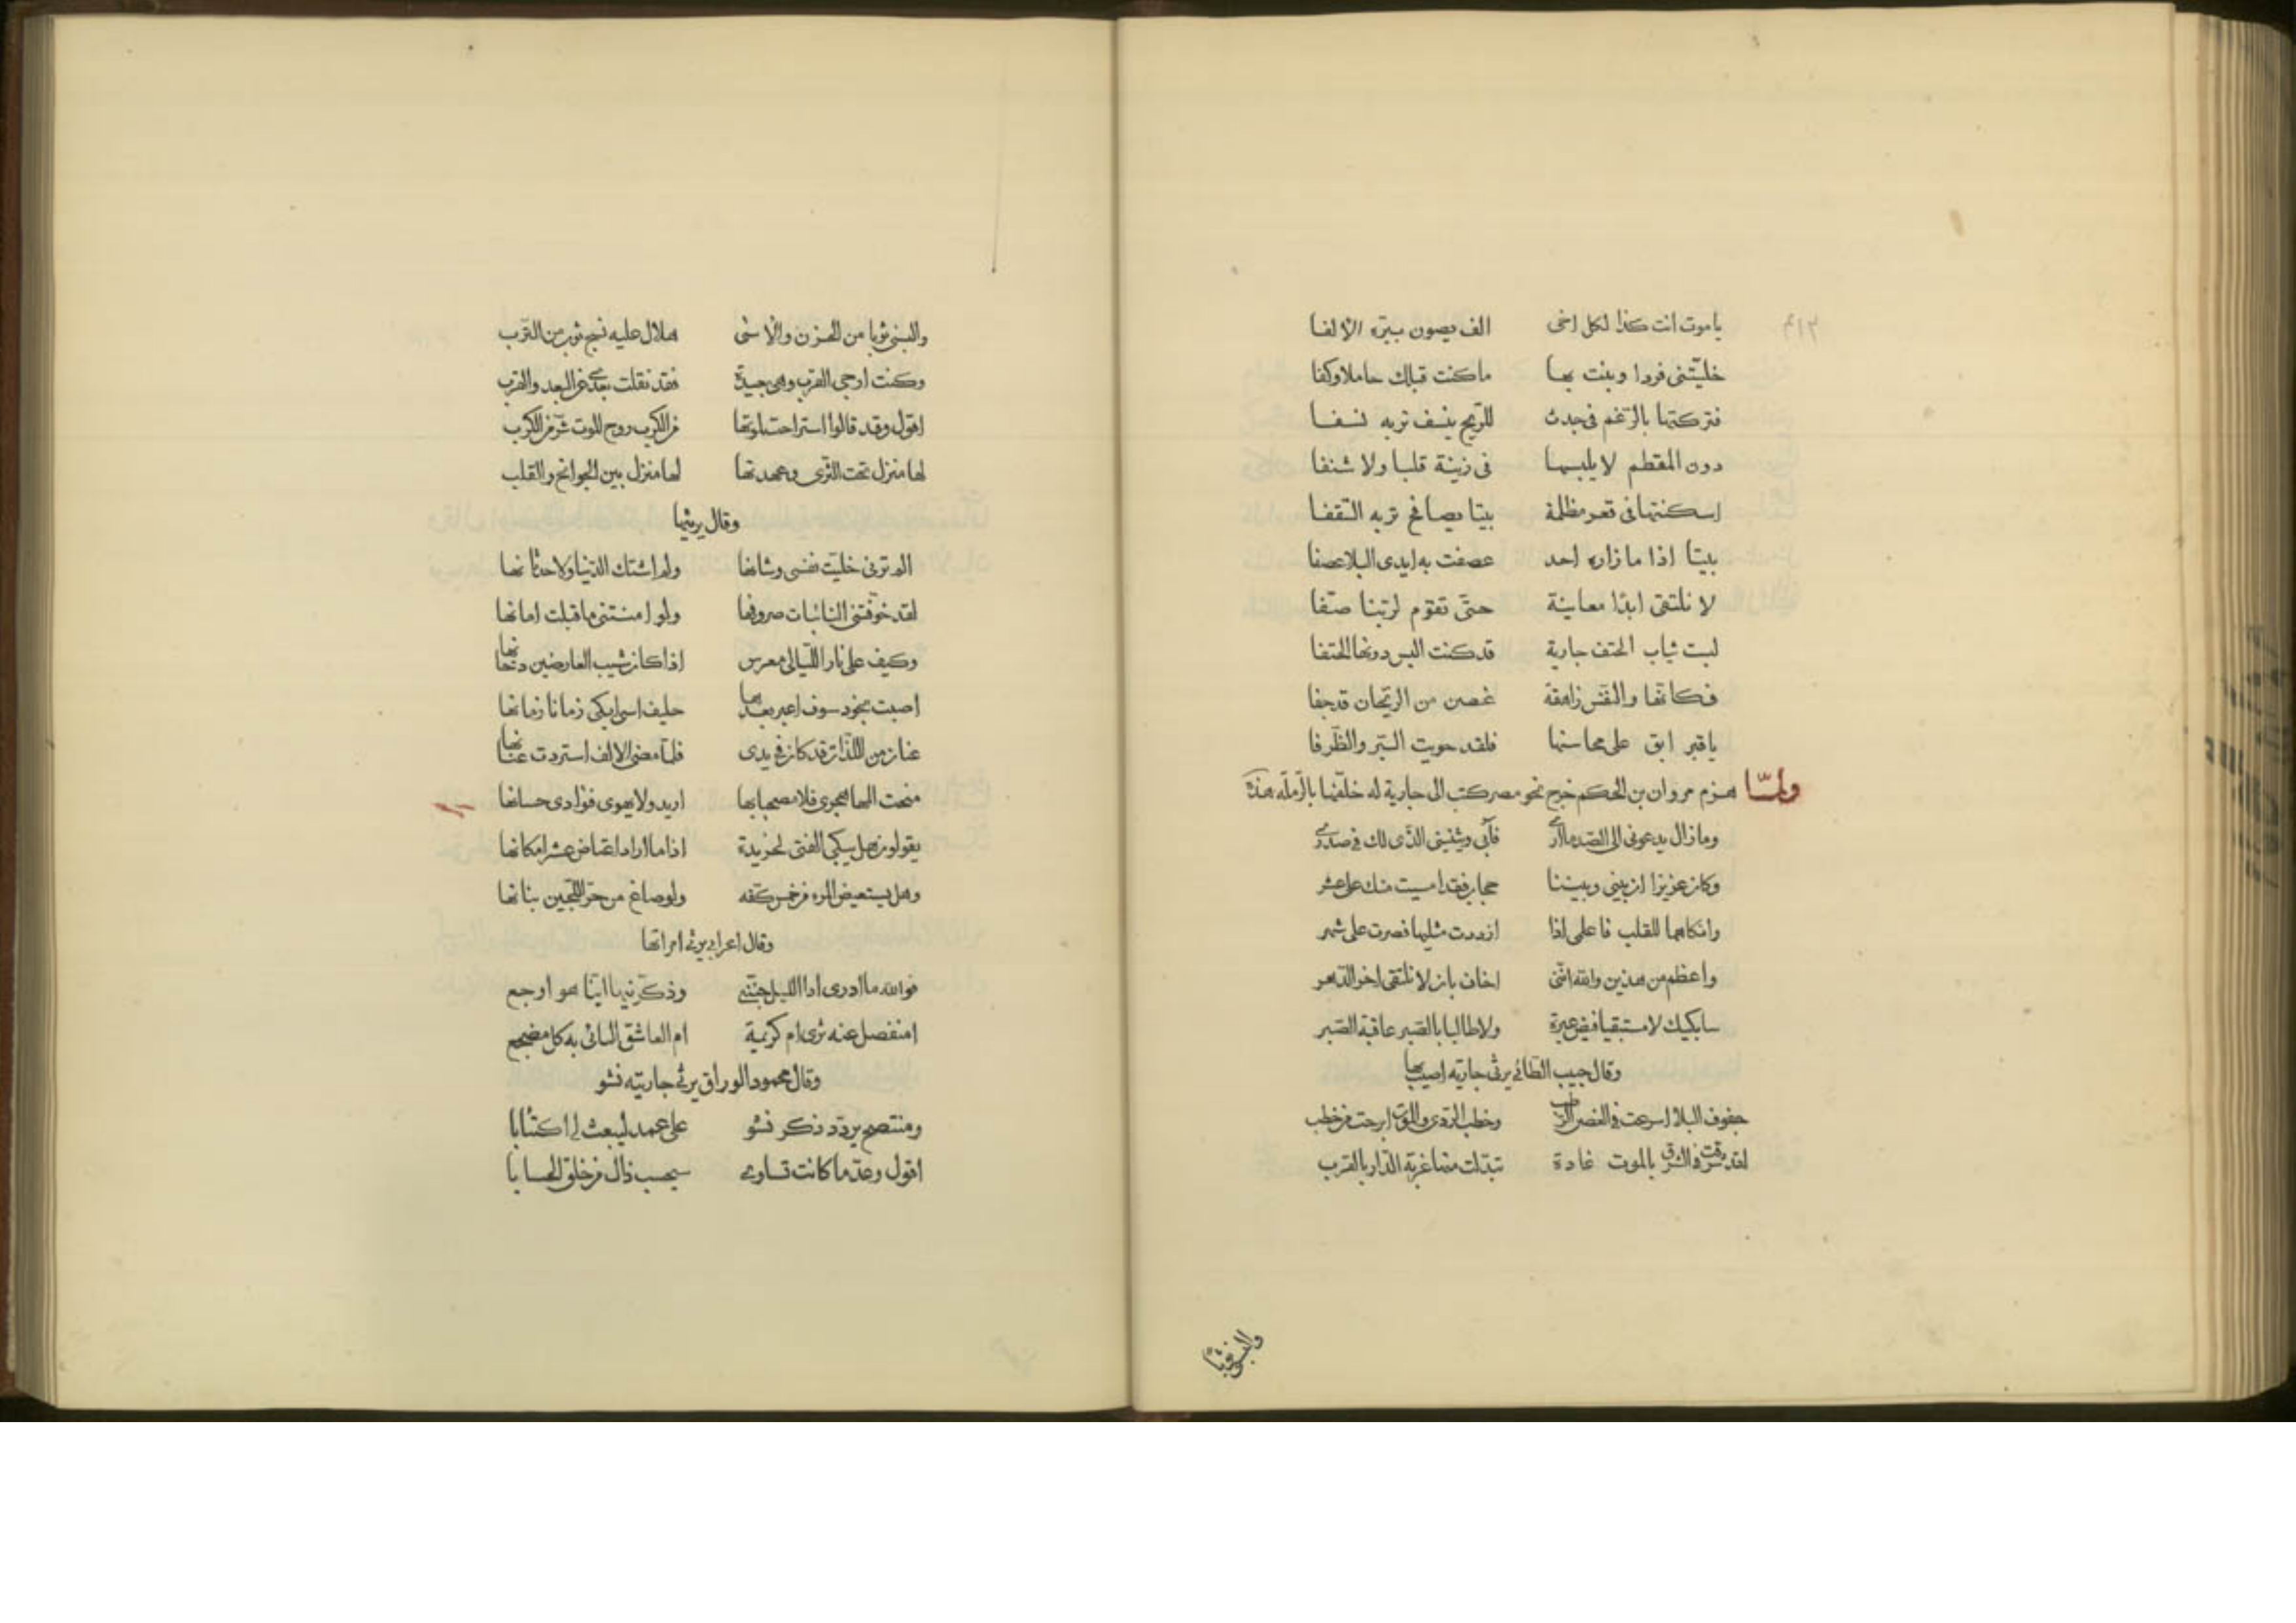 ٤١٢
يا موت انت كذا لكل اخى الف يصون ببّره الإلفا
خليّتنى فردا وبنت بها ما كنت قبلك حاملا وكفا
فتركتها بالرّغم فى جدث للرّيح ينسف تربه نسفا
دون المقطم لا يلبسها فى زينة قلبا ولا شنفا
اسكنتها فى قعر مظلمة بيتا يصافح تربه السّقفا
بيتا اذا ما زاره احد عصفت به ايدى البلا عصفا
لا نلتقى ابدًا معاينة حتّى تقوم لربّنا صفّا
لبست ثياب الحتف جارية قد كنت البس دونها الحتفا
فكانّها والنفس زاهقة غصن من الريحان قد جفا
يا قبر ابق على محاسنها فلقد حويت البّر والظّرفا
ولمّا هزم مروان بن الحكم خرج نحو مصر كتب الى جارية له خلّفها بالرّملة هذه
وما زال يدعونى الى الصّد ما ارى فآبى ويثنينى الذّى لك فى صدرى
وكان عزيزا ان بينى وبيننا حجاب فقد امسيت منك على عشر
وانكاهما للقلب فاعلمى اذا ازددت مثليها فصرت على شهر
واعظم من هذين والله انّنى اخاف بان لا نلتقى اخر الدّهر
سابكيك لا مستبقيا فيض عبرة ولا طالبا بالصّبر عاقبة الصّبر
وقال حبيب الطّائى يرثى جارية اصيب بها
جفوف البلا اسرعت فى الغصن الرطب وخطب الرّدى والموت ابرحت من خطب
لقد شرقت فى الشرق بالموت غادة تبدّلت منها غربة الدّار بالقرب
والبسنى ثوبا
والبسنى ثوبا من الحزن والأسى هلال عليه نسج ثوب من التّرب
وكنت ارجى القرب وهى بعيدة فقد نقلت بعدى عن البعد والقرب
اقول وقد قالوا استراحت بموتها من الكرب روح الموت شرّ من الكرب
لها منزل تحت الثّرى وعهدتها لها منزل بين الجوانح والقلب
وقال يرثيها
الم ترنى خليّت نفسى وشانها ولم اشتك الدّنيا ولا حدثانها
لقد خوّفتنى النائبات صروفها ولو امنتنى ما قبلت امانها
وكيف على نار اللّيالى معرس اذا كان شيب العارضين دخانها
اصبت بخود سوف اعبر بعدها حليف اسى ابكى زمانا زمانها
عنان من اللّذات قد كان فى يدى فلمّا مضى الالف استردت عنانها
منحت المها هجرى فلا محسناتها اريد ولا يهوى فؤادى حسانها
يقولون هل يبكى الفتى لخريدة اذا ما اراد اعتاض عشرا مكانها
وهل يستعيض المرء من خمس كفّه ولو صاغ من حرّ اللّجين بنانها
وقال اعرابى يرثى امراتها
فوالله ما ادرى اذا الليل جنّنى وذكّرنيها ايّنا هو اوجع
امنفصل عنه ثرى ام كريمة ام العاشق النائى به كل مضجع
وقال محمود الوراق يرثى جاريته نشو
ومنتصح يردّد ذكر نشو على عمد ليبعث لى اكتئابا
اقول وعدّ ما كانت تساوى سيحسب ذاك من خلق الحسابا